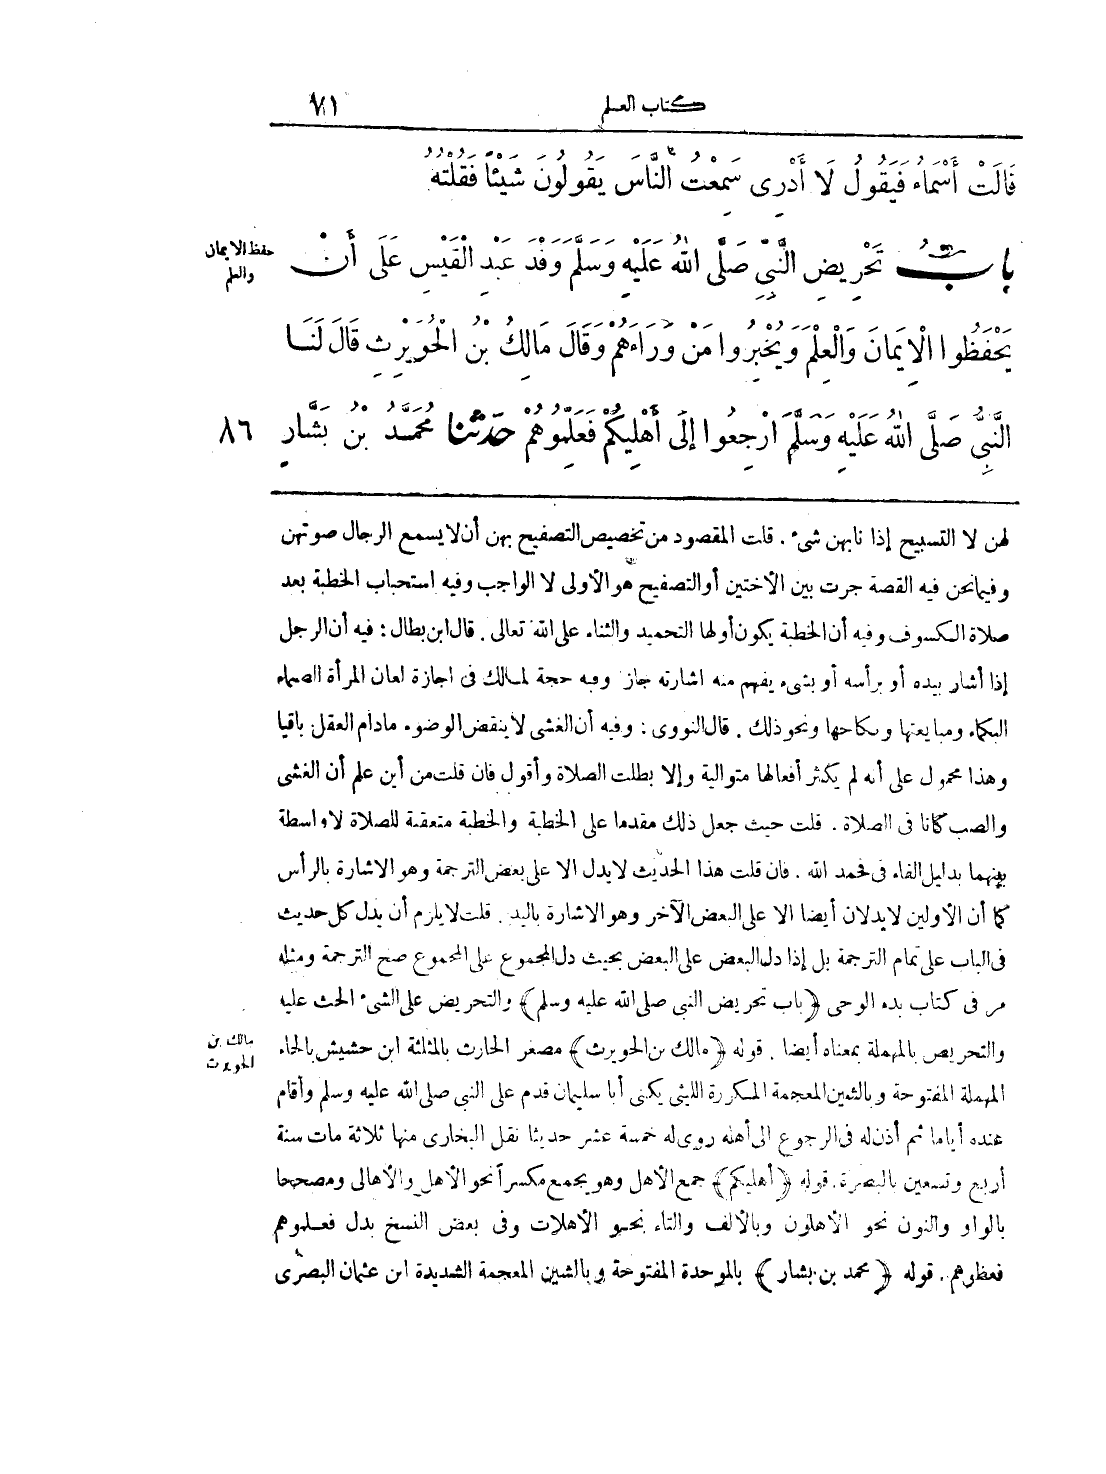 كتاب العلم ٧١
قَالَتْ أَسْمَاءُ فَيَقُولُ لَا أَدْرِى سَمِعْتُ النَّاسَ يَقُولُونَ شَيْئًا فَقُلْتُهُ
بابُ تَحْرِيضِ النَّبِىِّ صَلَّى اللهُ عَلَيْهِ وَسَلَّمَ وَفْدَ عَبْدِ الْقَيْسِ عَلَى أَنْ
حفظ الايمان
والعلم
يَحْفَظُوا الْإِيمَانَ وَالْعِلْمَ وَيُخْبِرُوا مَنْ وَرَاءَهُمْ وَقَالَ مَالِكُ بْنُ الْحُوَيْرِثِ قَالَ لَنَا
النَّبِىُّ صَلَّى اللهُ عَلَيْهِ وَسَلَّمَ ارْجِعُوا إِلَى أَهْلِيكُمْ فَعَلِّمُوهُمْ حَدَّثَنَا مُحَمَّدُ بْنُ بَشَّارٍ ٨٦
لهن لا التسبيح إذا نابهن شىء . قلت المقصود من تخصيص التصفيح بهن أن لا يسمع الرجال صوتهن
وفيما نحن فيه القصة جرت بين الأختين أو التصفيح هو الأولى لا الواجب وفيه استحباب الخطبة بعد
صلاة الكسوف وفيه أن الخطبة يكون أولها التحميد والثناء على الله تعالى . قال ابن بطال : فيه أن الرجل
إذا أشار بيده أو برأسه أو بشىء يفهم منه اشارته جاز وفيه حجة لمالك فى اجازة لعان المرأة الصماء
البكماء ومبايعتها ونكاحها ونحو ذلك . قال النووى : وفيه أن الغشى لا ينقض الوضوء مادام العقل باقيا
وهذا محمول على أنه لم يكثر أفعالها متوالية وإلا بطلت الصلاة وأقول فان قلت من أين علم أن الغشى
والصب كانا فى الصلاة . قلت حيث جعل ذلك مقدما على الخطبة والخطبة متعقبة للصلاة لا واسطة
بينهما بدليل الفاء فى فحمد الله . فان قلت هذا الحديث لا يدل الا على بعض الترجمة وهو الاشارة بالرأس
كما أن الأولين لا يدلان أيضا الا على البعض الآخر وهو الاشارة باليد . قلت لا يلزم أن يدل كل حديث
فى الباب على تمام الترجمة بل إذا دل البعض على البعض بحيث دل المجموع على المجموع صح الترجمة ومثله
مر فى كتاب بدء الوحى ﴿باب تحريض النبى صلى الله عليه وسلم﴾ والتحريض على الشىء الحث عليه
والتحريص بالمهملة بمعناه أيضا . قوله ﴿مالك بن الحويرث﴾ مصغر الحارث بالمثلثة ابن حشيش بالحاء
مالك بن
الحويرث
المهملة المفتوحة وبالشين المعجمة المكررة الليثى يكنى أبا سليمان قدم على النبى صلى الله عليه وسلم وأقام
عنده أياما ثم أذن له فى الرجوع الى أهله روى له خمسة عشر حديثا نقل البخارى منها ثلاثة مات سنة
أربع وتسعين بالبصرة . قوله ﴿أهليكم﴾ جمع الأهل وهو يجمع مكسرا نحو الأهل والأهالى ومصححا
بالواو والنون نحو الأهلون وبالألف والتاء نحو الأهلات وفى بعض النسخ بدل فعلموهم
فعظوهم . قوله ﴿محمد بن بشار﴾ بالموحدة المفتوحة وبالشين المعجمة الشديدة ابن عثمان البصرى